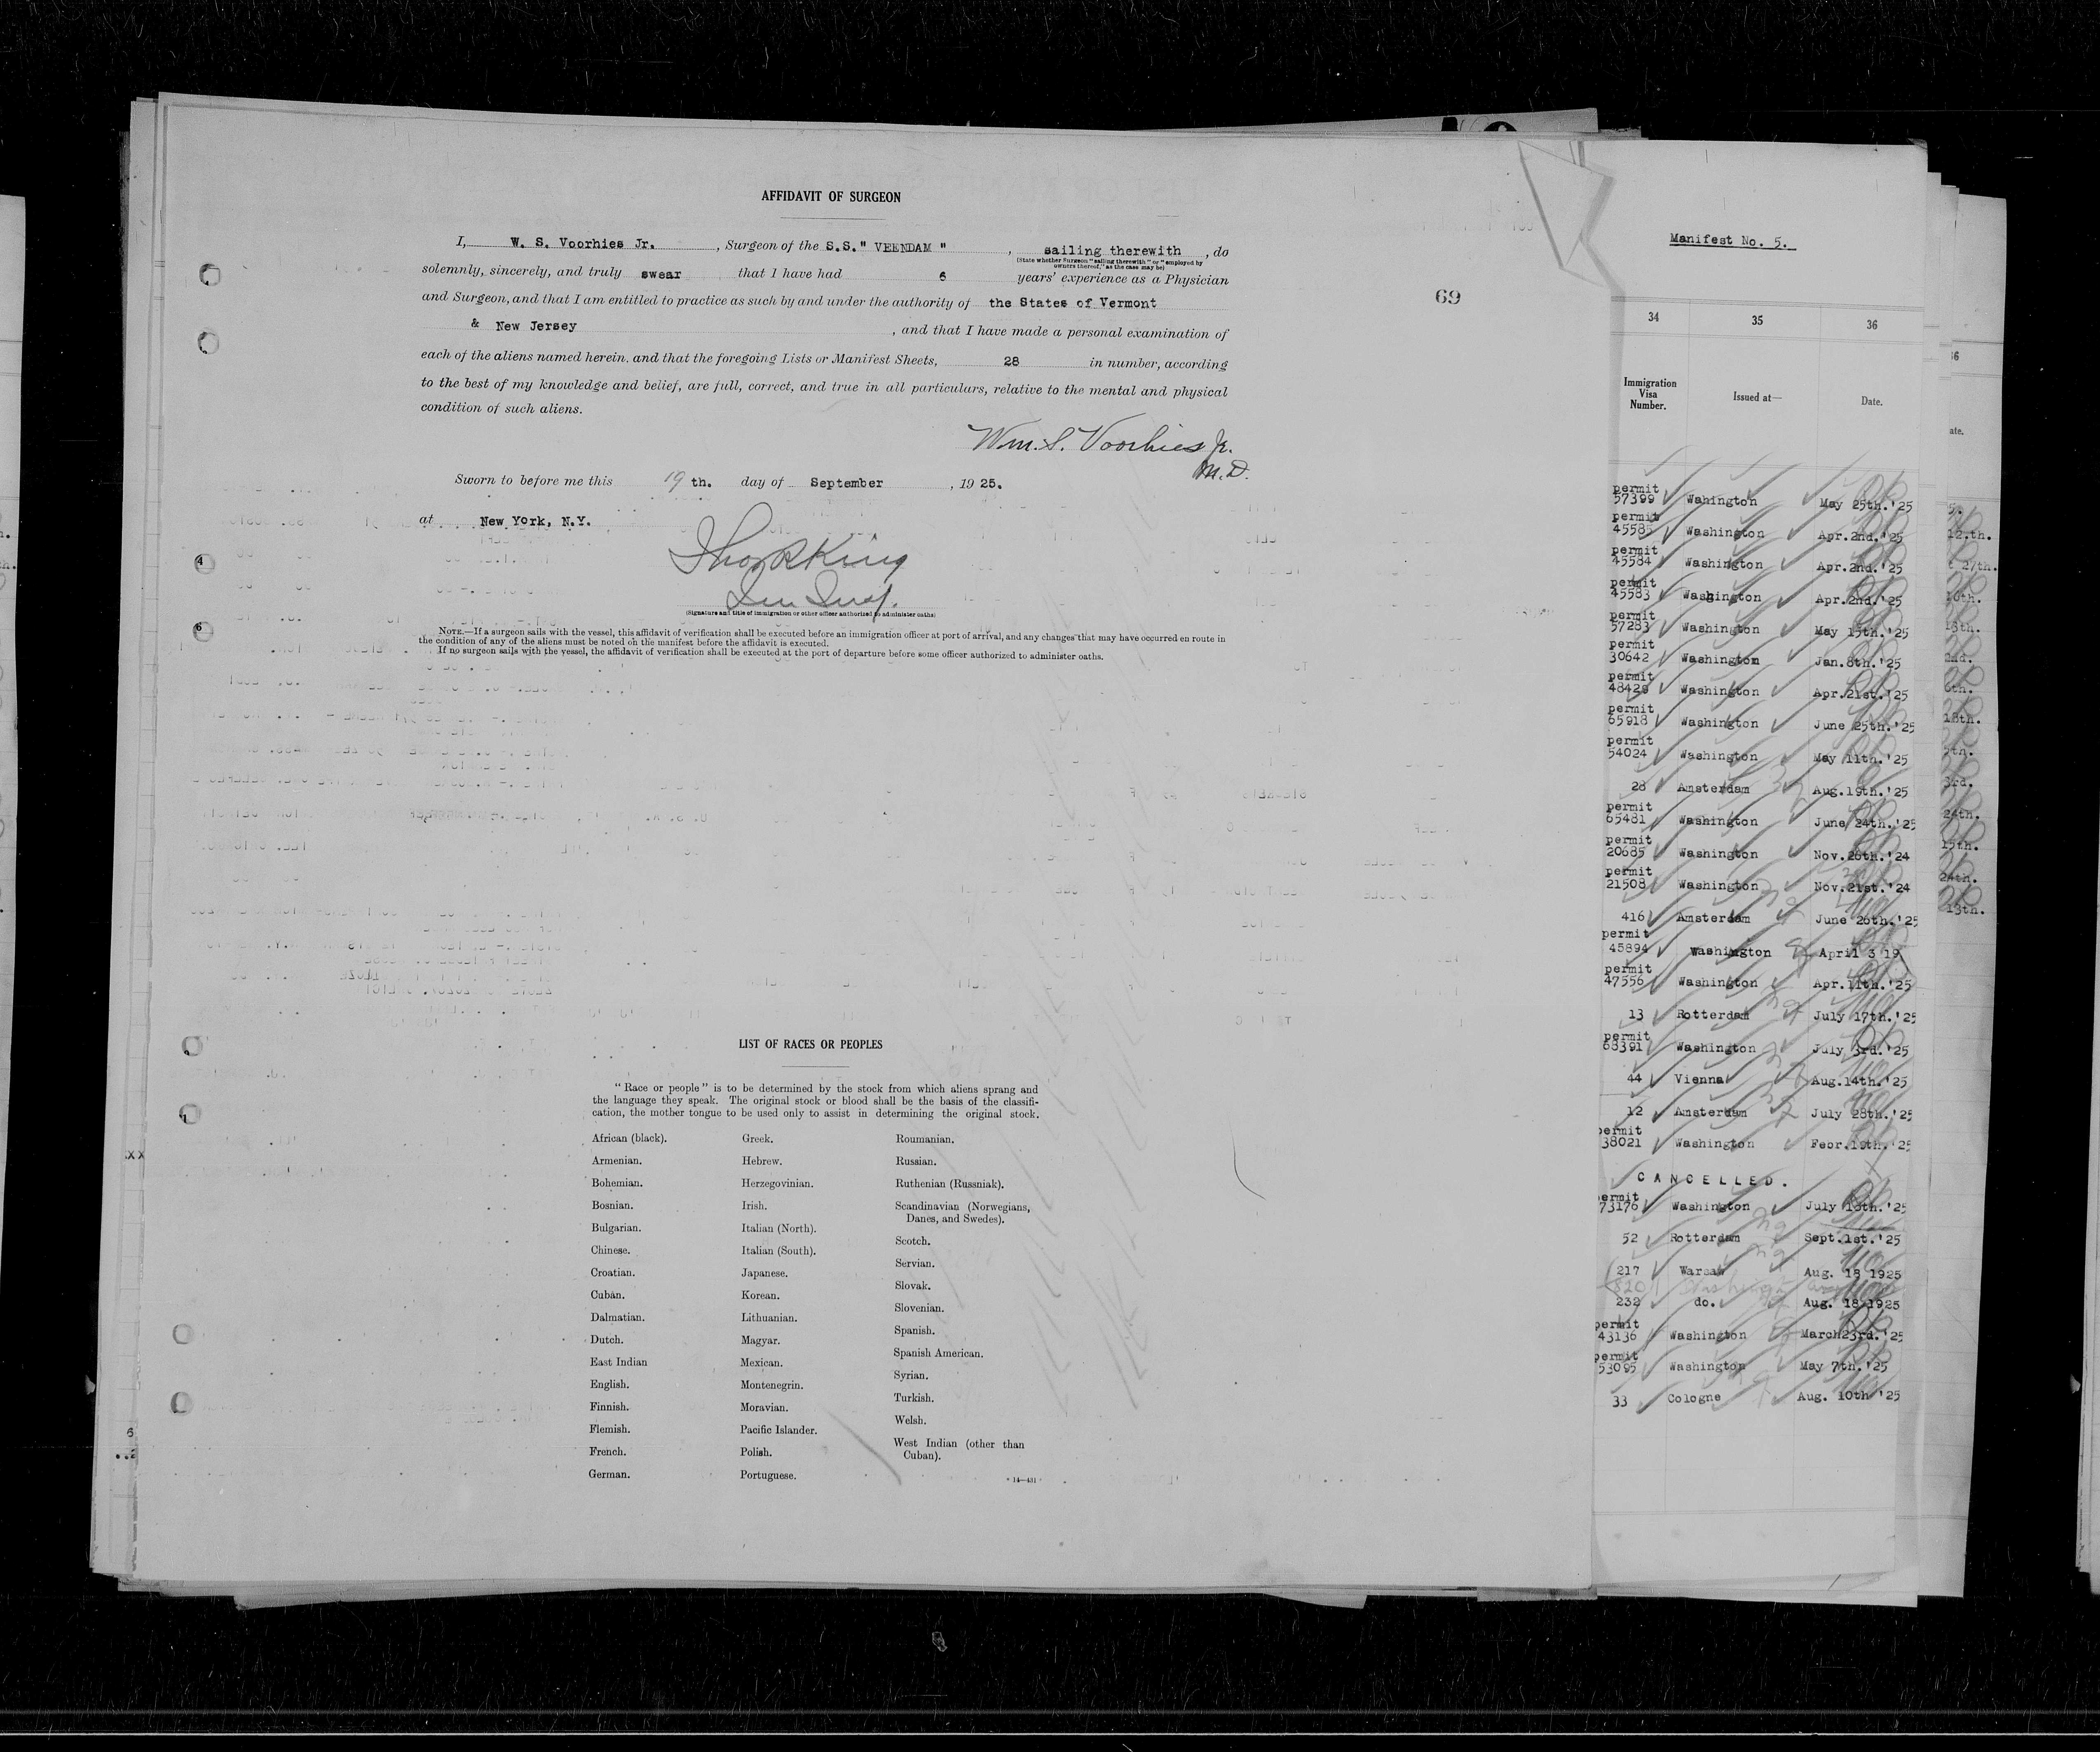 AFFIDAVIT OF SURGEON
I, W. S. Voorhies Jr. , Surgeon of the S.S." VEENDAM " , sailing therewith , do
(State whether Surgeon "sailing therewith" or "employed by
owners thereof," as the case may be)
solemnly, sincerely, and truly swear that I have had 6 years' experience as a Physician
and Surgeon, and that I am entitled to practice as such by and under the authority of the States of Vermont
& New Jersey , and that I have made a personal examination of
each of the aliens named herein, and that the foregoing Lists or Manifest Sheets, 28 in number, according
to the best of my knowledge and belief, are full, correct, and true in all particulars, relative to the mental and physical
condition of such aliens.
Wm. S. Voorhies Jr.
M.D.
Sworn to before me this 19 th. day of September , 19 25.
at New York, N.Y.
(Signature and title of immigration or other officer authorized to administer oaths)
NOTE.—If a surgeon sails with the vessel, this affidavit of verification shall be executed before an immigration officer at port of arrival, and any changes that may have occurred en route in
the condition of any of the aliens must be noted on the manifest before the affidavit is executed.
If no surgeon sails with the vessel, the affidavit of verification shall be executed at the port of departure before some officer authorized to administer oaths.
69
LIST OF RACES OR PEOPLES
"Race or people" is to be determined by the stock from which aliens sprang and
the language they speak. The original stock or blood shall be the basis of the classifi-
cation, the mother tongue to be used only to assist in determining the original stock.
African (black).
Armenian.
Bohemian.
Bosnian.
Bulgarian.
Chinese.
Croatian.
Cuban.
Dalmatian.
Dutch.
East Indian
English.
Finnish.
Flemish.
French.
German.
Greek.
Hebrew.
Herzegovinian.
Irish.
Italian (North).
Italian (South).
Japanese.
Korean.
Lithuanian.
Magyar.
Mexican.
Montenegrin.
Moravian.
Pacific Islander.
Polish.
Portuguese.
Roumanian.
Russian.
Ruthenian (Russniak).
Scandinavian (Norwegians,
Danes, and Swedes).
Scotch.
Servian.
Slovak.
Slovenian.
Spanish.
Spanish American.
Syrian.
Turkish.
Welsh.
West Indian (other than
Cuban).
14—431
Manifest No. 5.
34 35 36
Immigration
Visa
Number.
Issued at—
Date.
permit
57399 Wahington May 25th.'25
permit
45585 Washington Apr.2nd.'25
permit
45584 Washington Apr.2nd.'25
permit
45583 Washington Apr.2nd.'25
permit
57283 Washington May 15th.'25
permit
30642 Washington Jan.8th.'25
permit
48429 Washington Apr.21st.'25
permit
65918 Washington June 25th.'25
permit
54024 Washington May 11th.'25
28 Amsterdam Aug.19th.'25
permit
65481 Washington June 24th.'25
permit
20685 Washington Nov.26th.'24
permit
21508 Washington Nov.21st.'24
416 Amsterdam June 26th.'25
permit
45894 Washington April 3 19
permit
47556 Washington Apr.11th.'25
13 Rotterdam July 17th.'25
permit
68391 Washington July 3rd.'25
44 Vienna Aug.14th.'25
12 Amsterdam July 28th.'25
permit
38021 Washington Febr.19th.'25
CANCELLED.
permit
73176 Washington July 18th.'25
52 Rotterdam Sept.1st.'25
217 Warsaw Aug. 18 1925
232 do. Aug. 18 1925
permit
43136 Washington March23rd.'25
permit
53095 Washington May 7th.'25
33 Cologne Aug. 10th '25